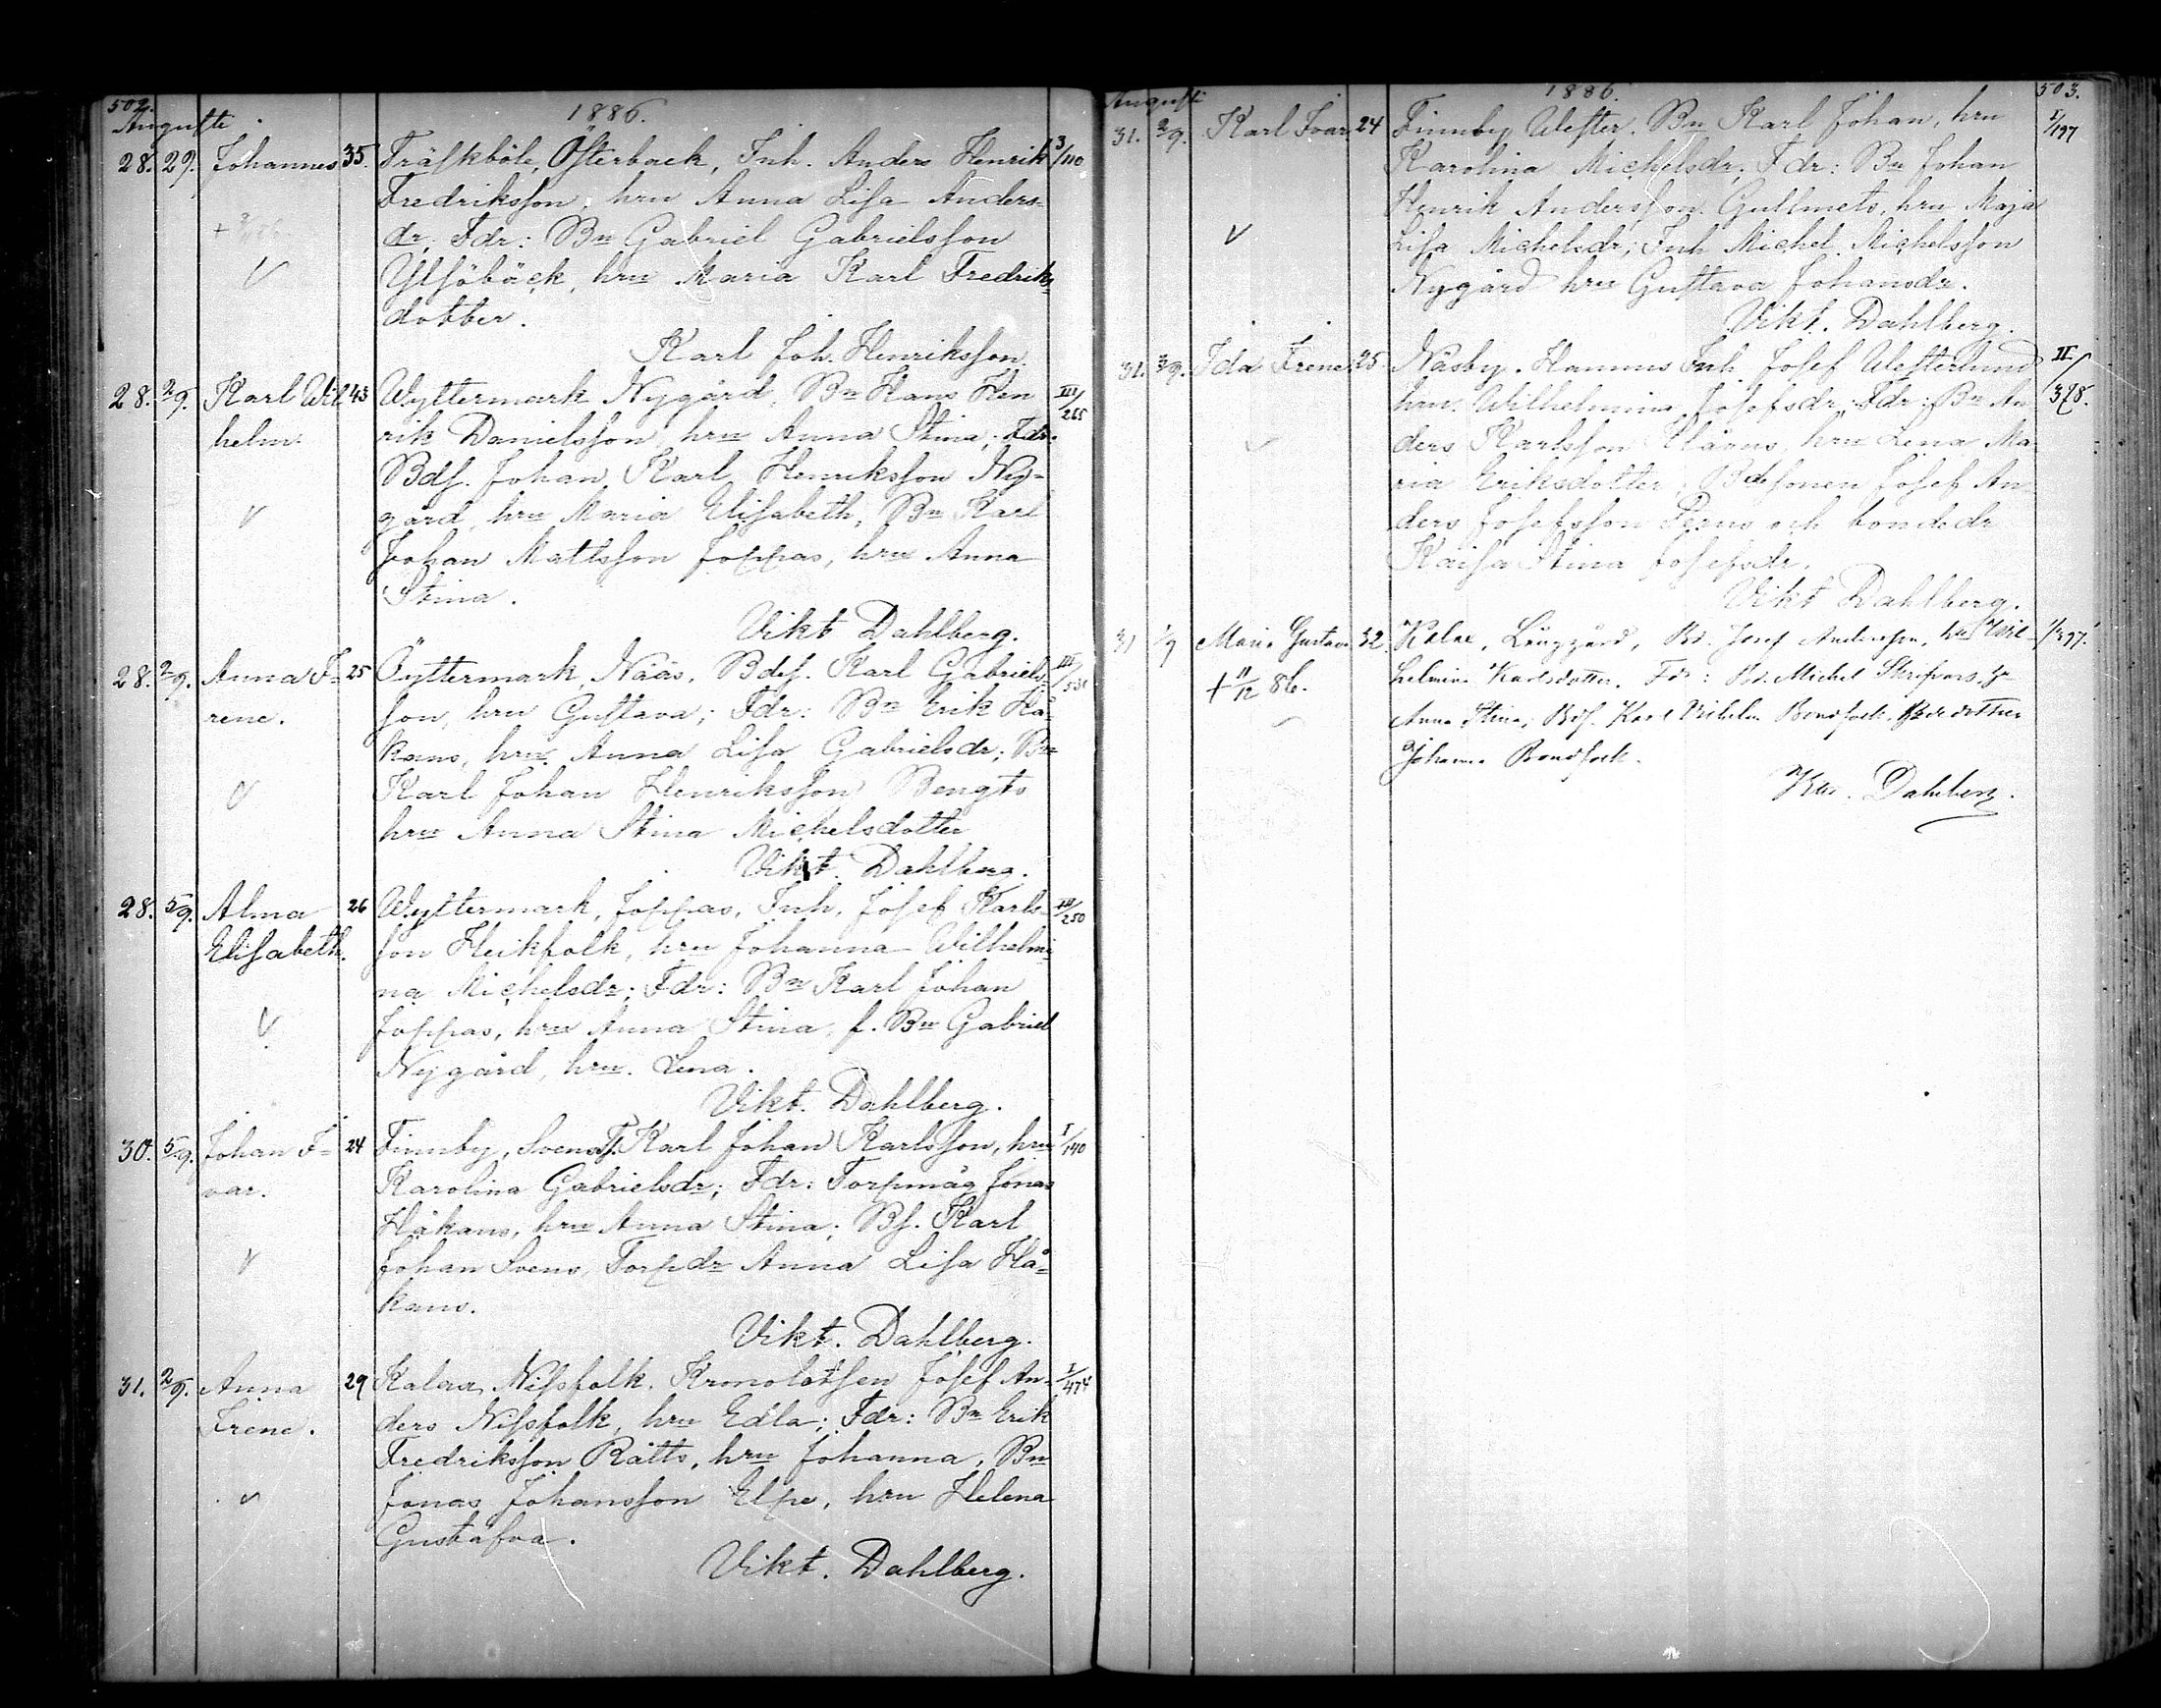 502.
1886.
Augusti.
28. 29. Johannes 35. Träskböle, Österback, Inh. Anders Henrik 3/110
Fredriksson, hru Anna Lisa Anders-
dr, Fdr: Bn Gabriel Gabrielsson
Ytsöbäck, hru Maria Karl Fredriks-
dotter.
Karl Joh. Henriksson.
28. 2/9. Karl Wil 43 Wyttermark Nygård, Bn Hans Hen III/265
helm. rik Danielsson, hru Anna Stina; Fdr.
Bdss. Johan Karl Henriksson Ny-
gård, hru Maria Elisabeth, Bn Karl
Johan Mattsson Joppas, hru Anna
Stina.
Vikt Dahlberg.
28. 2/9. Anna I- 25 Öyttermark, Nääs, Bdss. Karl Gabriels- III/
rene. son, hru Gustava; Fdr: Bn Erik Hå-
kans, hru Anna Lisa Gabrielsdr; Bn
Karl Johan Henriksson Bengts
hru Anna Stina Michelsdotter
Vikt. Dahlberg.
28. 5/9. Alma 26 Wyttermark, Joppas, Inh. Josef Karls- III/250
Elisabeth. son Heikfolk, hru Johanna Wilhelmi-
na Michelsdr; Fdr: Bn Karl Johan
Joppas, hru Anna Stina, f. Bn Gabriel
Nygård, hru. Lena.
Vikt. Dahlberg.
30. 5/9. Johan I- 24 Finnby, Svens Tj. Karl Johan Karlsson, hru I/140
var. Karolina Gabrielsdr; Fdr: Torpmåg Jonas
Håkans, hru Anna Stina; Bs. Karl
Johan Svens, Torpdr Anna Lisa Hå-
kans.
Vikt. Dahlberg.
31. 2/9. Anna 29 Kalax, Nissfolk. Kronolotsen Josef An- I/474
Irene. ders Nissfolk, hru Edla; Fdr: Bn Erik
Fredriksson Rätts, hru Johanna, Bn
Jonas Johansson Elpe, hru Helena
Gustafva.
Vikt. Dahlberg.
Augusti 1886. 503.
31. 2/9. Karl Ivar. 24 Finnby Wester. Bn Karl Johan, hru I/197
Karolina Michelsdr; Fdr: Bn Johan
Henrik Andersson Gullmets, hru Maja
Lisa Michelsdr; Inh Michel Michelsson
Nygård hru Gustava Johansdr.
Vikt. Dahlberg.
31. 3/9. Ida Irene 25 Näsby. Hannus Inh Josef Westerlund II/378.
hru. Wilhelmina Josefsdr; Fdr: Bn An-
ders Karlsson Klärus, hru Lena Ma-
ria Eriksdotter; Bdssonen Josef An-
ders Josefsson Perus och bondedr
Kajsa Stina Josefsdr.
Vikt Dahlberg.
31 /9 Maria Gustava 32 Kalax, Långgård, Bd. Josef Andersson, hu Wil- I/397.
+ 11/12 86. helmina Karlsdotter. Fdr: Bd. Michel Skrifvars, hu
Anna Stina; Bdss. Karl Vilhelm Bondfolk, Bdedotter
Johanna Bondfolk.
Dahlberg.